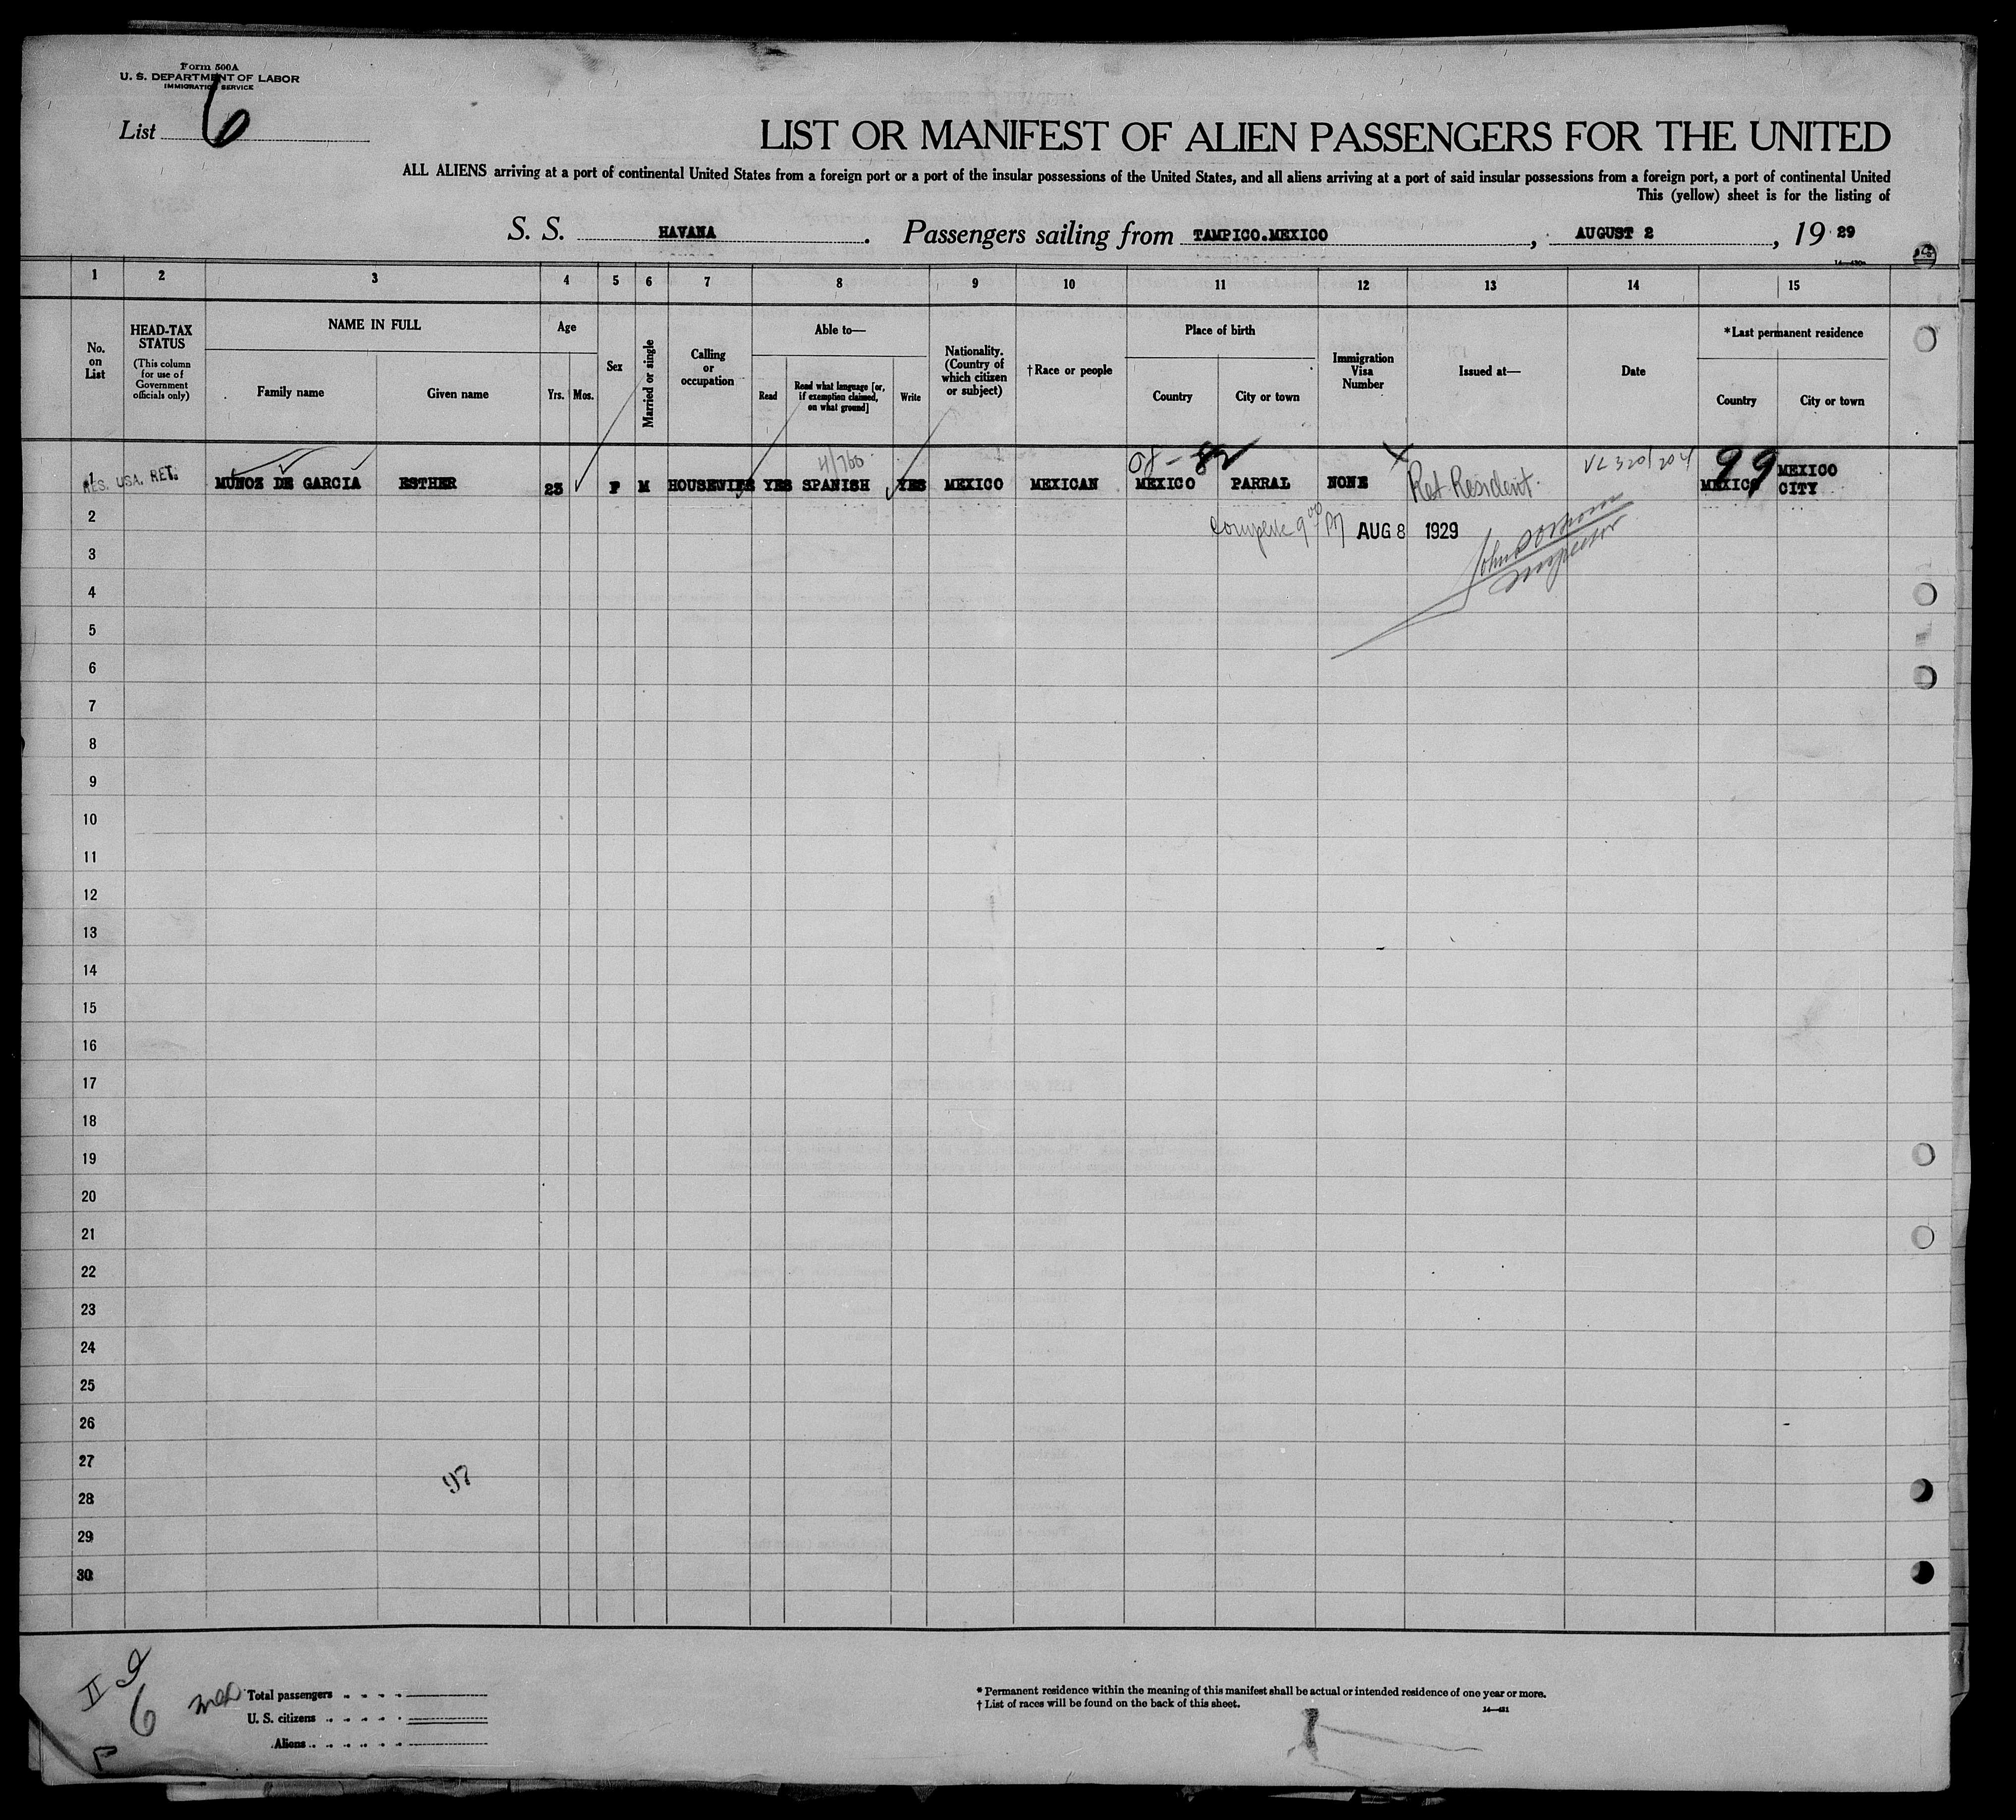 Form 500A
U. S. DEPARTMENT OF LABOR
IMMIGRATION SERVICE
List 6
LIST OR MANIFEST OF ALIEN PASSENGERS FOR THE UNITED
ALL ALIENS arriving at a port of continental United States from a foreign port or a port of the insular possessions of the United States, and all aliens arriving at a port of said insular possessions from a foreign port, a port of continental United
This (yellow) sheet is for the listing of
S. S. HAVANA. Passengers sailing from TAMPICO.MEXICO, AUGUST 2, 19 29
1 2 3 4 5 6 7 8 9 10 11 12 13 14 15
No. on List
HEAD-TAX STATUS (This column for use of Government officials only)
NAME IN FULL
Family name Given name
Age
Yrs. Mos.
Sex
Married or single
Calling or occupation
Able to—
Read
Read what language [or, if exemption claimed, on what ground]
Write
Nationality. (Country of which citizen or subject)
†Race or people
Place of birth
Country City or town
Immigration Visa Number
Issued at—
Date
*Last permanent residence
Country City or town
4/760
08 - 82
99
1 RES. USA. RET. MUÑOZ DE GARCIA ESTHER 23 F M HOUSEWIFE YES SPANISH YES MEXICO MEXICAN MEXICO PARRAL NONE Ret Resident. MEXICO MEXICO CITY
2 AUG 8 1929
3
4 Inspector
5
6
7
8
9
10
11
12
13
14
15
16
17
18
19
20
21
22
23
24
25
26
27
97
28
29
30
II
6
Total passengers
U. S. citizens
Aliens
* Permanent residence within the meaning of this manifest shall be actual or intended residence of one year or more.
† List of races will be found on the back of this sheet.